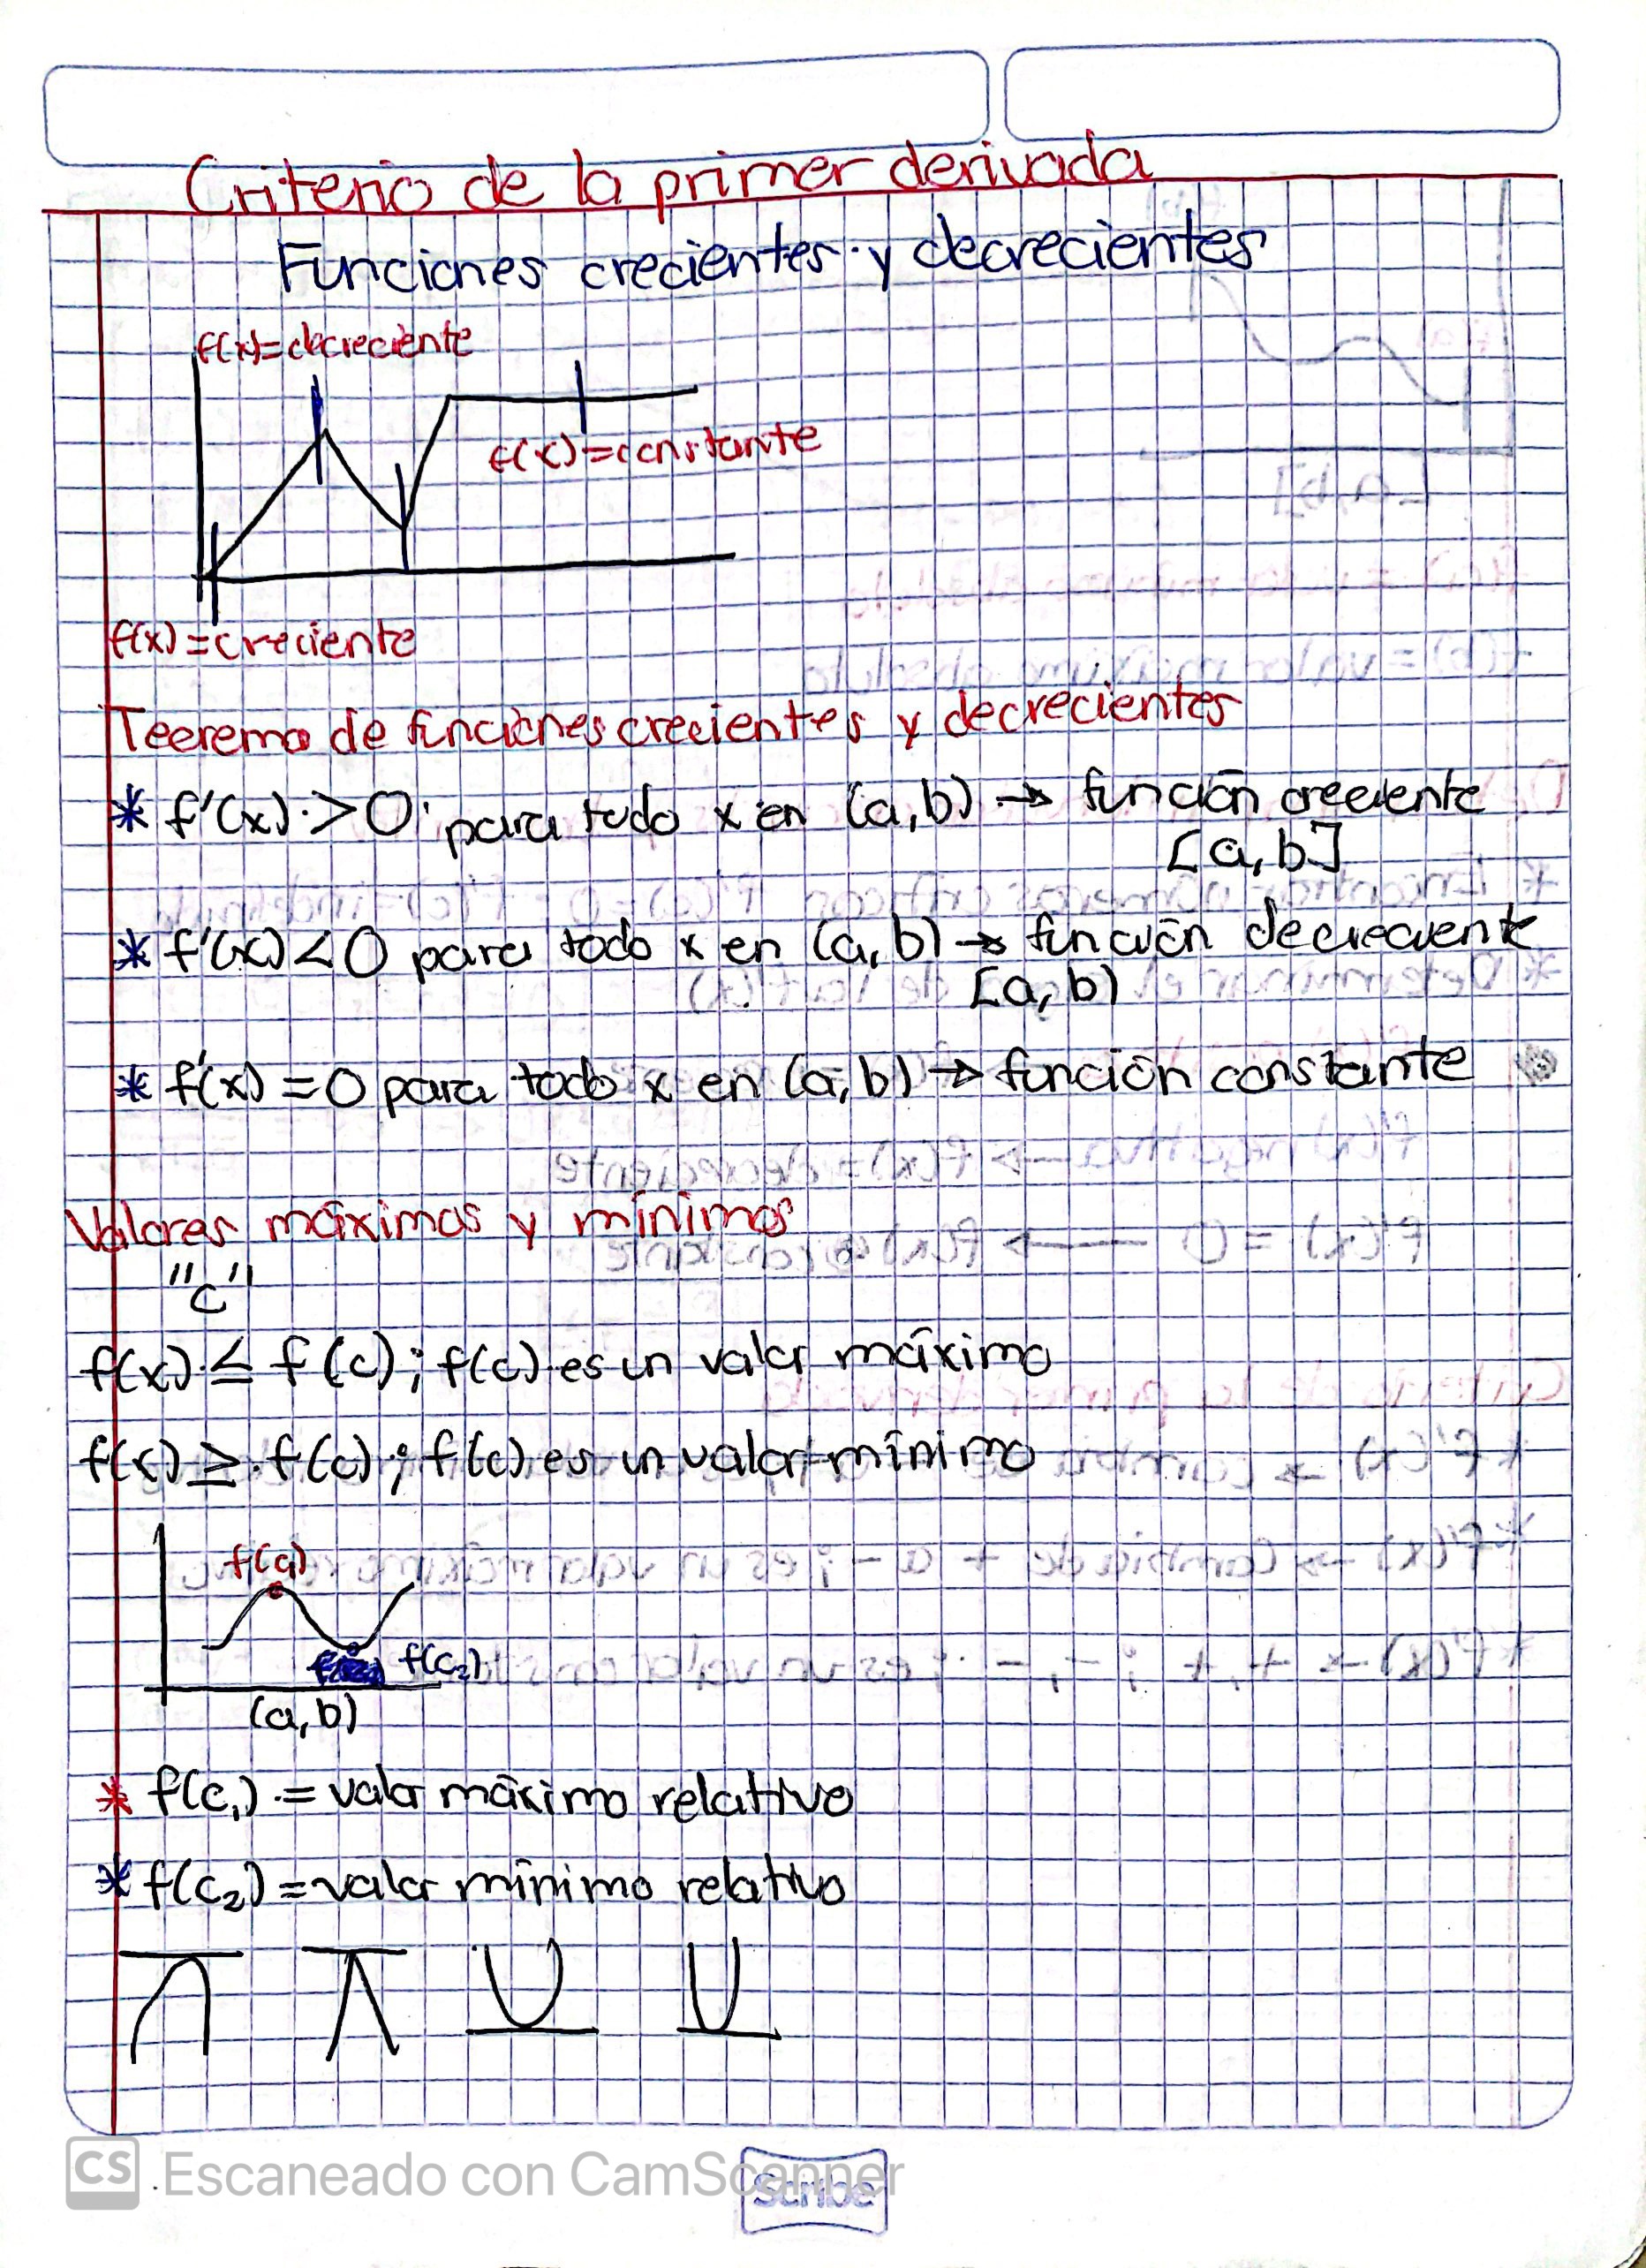 Criterio de la primer derivada
Funciones crecientes y decrecientes
f(x)=decreciente
f(x)=constante
f(x)=creciente
Teorema de funciones crecientes y decrecientes
* f'(x) > 0 para todo x en (a,b) → función creciente
[a,b]
* f'(x) < 0 para todo x en (a,b) → función decreciente
[a,b)
* f'(x) = 0 para todo x en (a,b) → función constante
Valores máximos y mínimos
"c"
f(x) ≤ f(c); f(c) es un valor máximo
f(x) ≥ f(c); f(c) es un valor mínimo
f(c₁)
f(c₂)
(a,b)
* f(c₁) = valor máximo relativo
* f(c₂) = valor mínimo relativo
CS Escaneado con CamScanner
Scribe